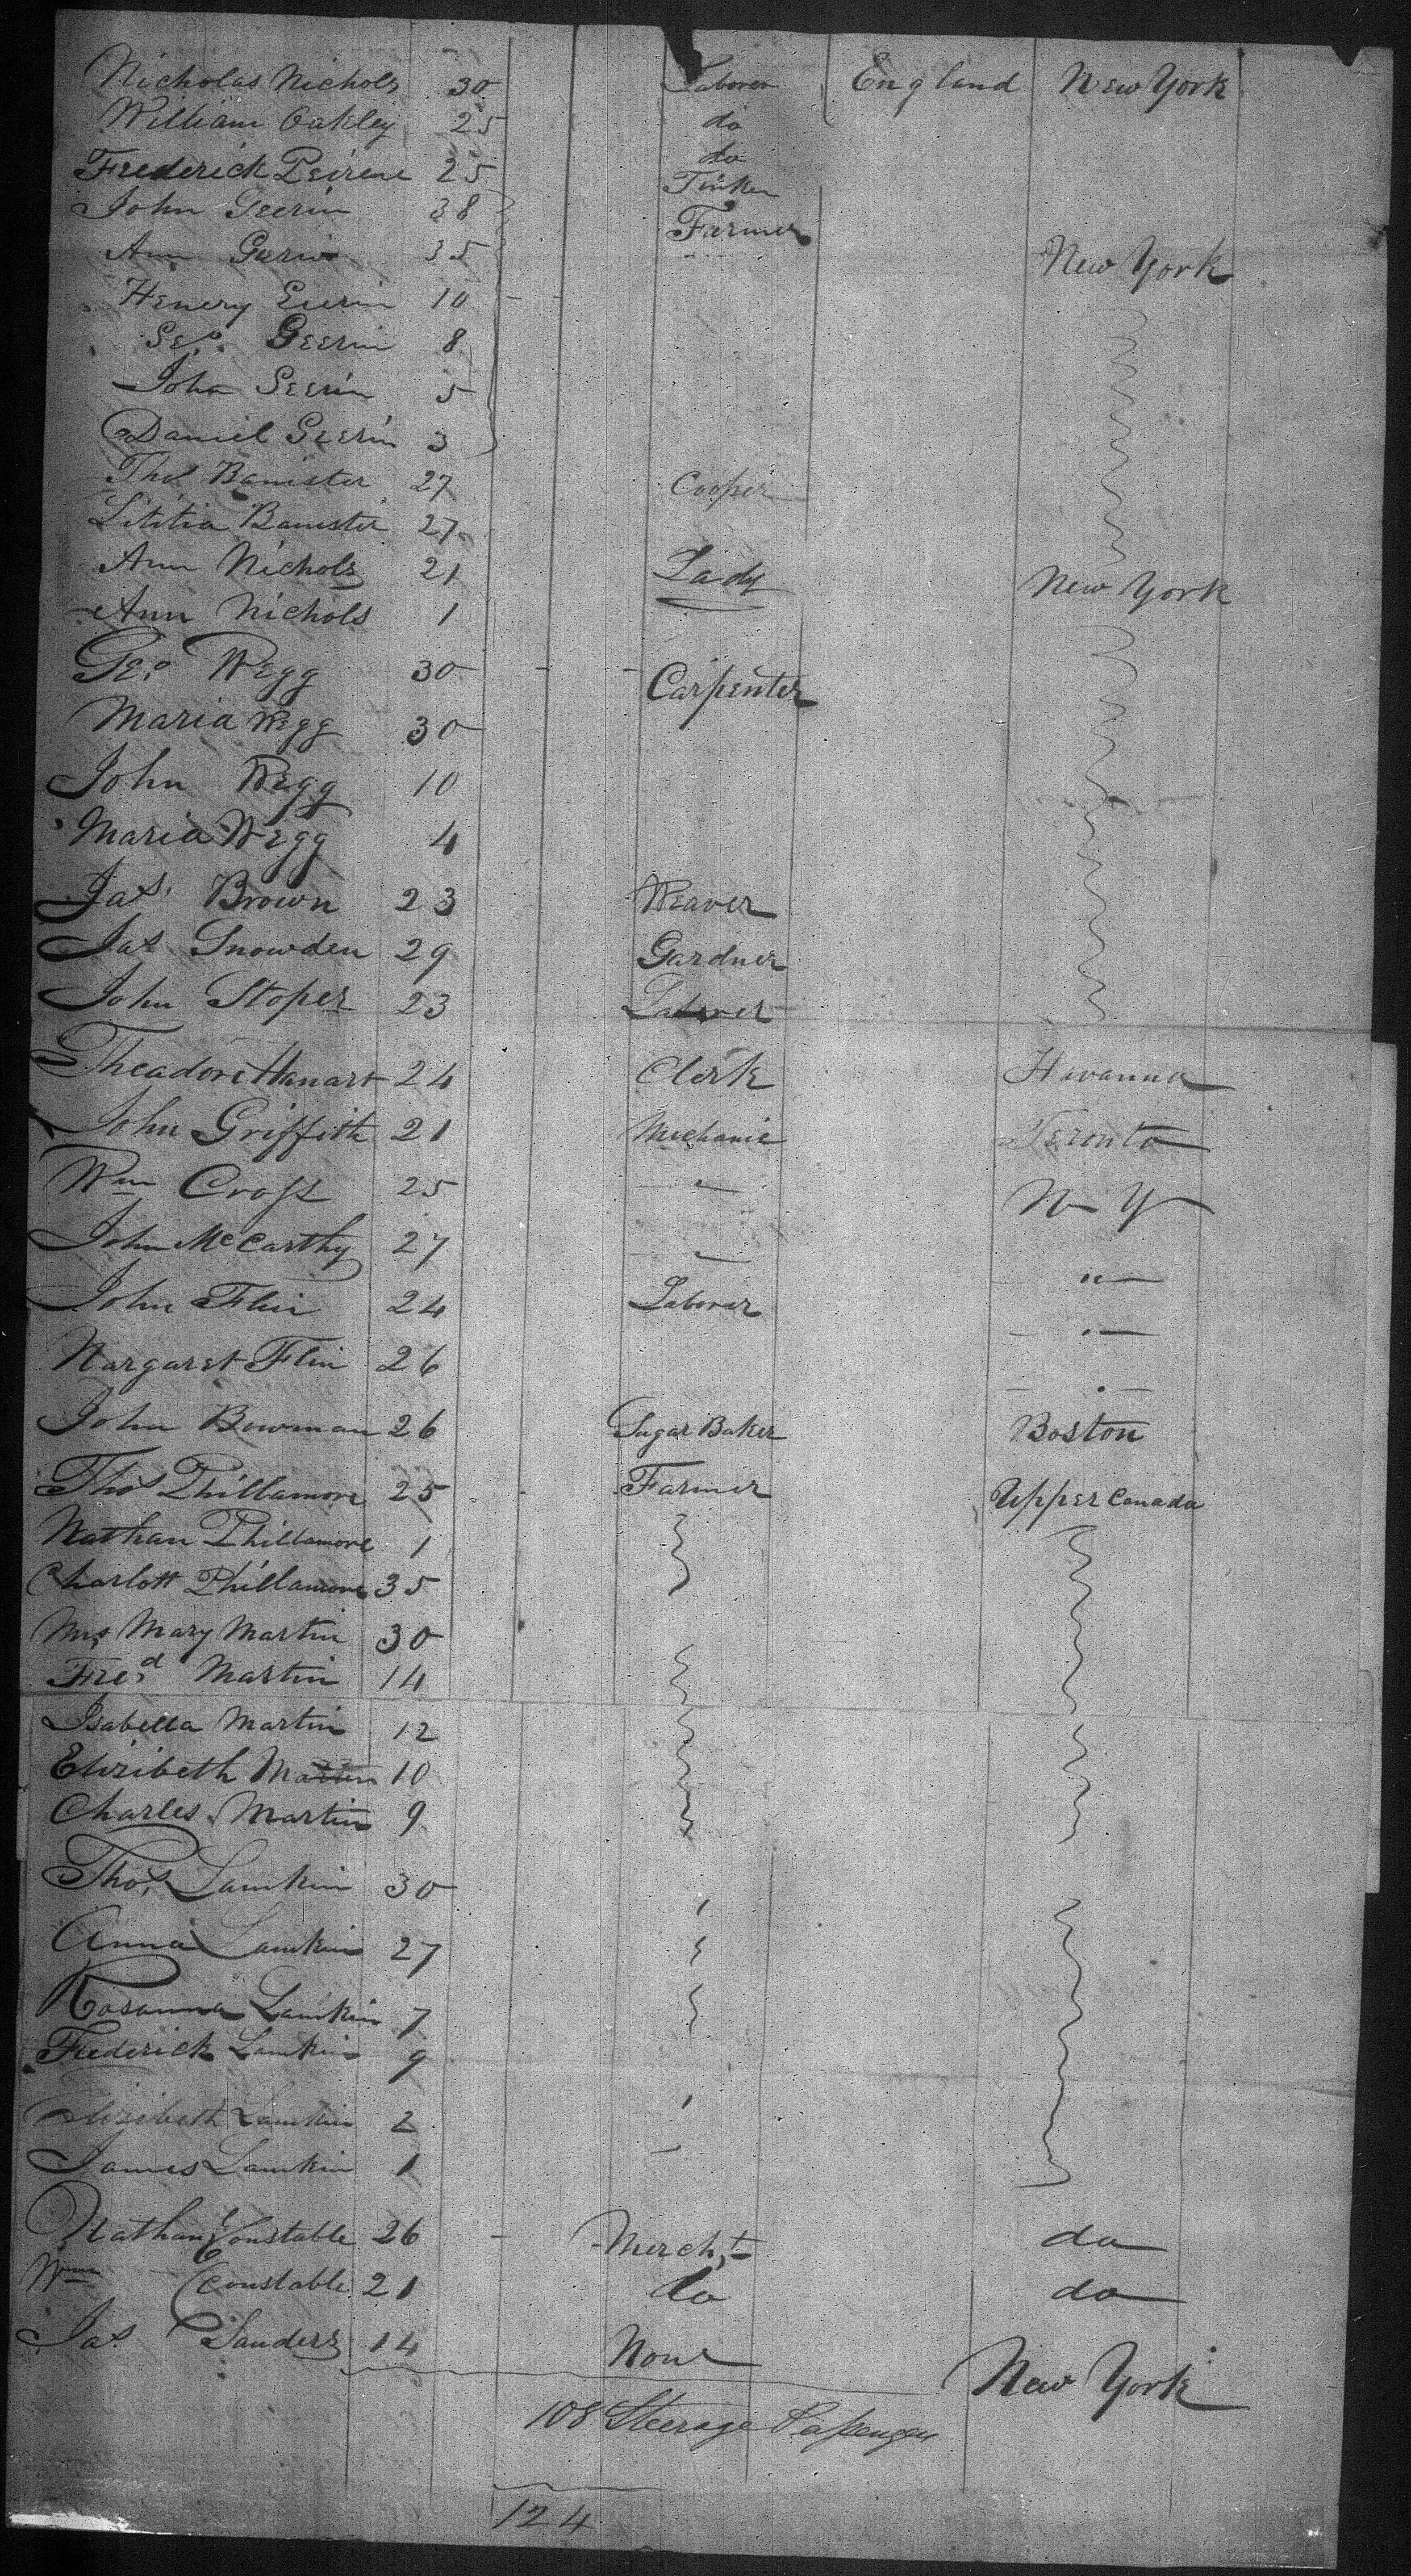 Nicholas Nichols 30 Laborer England New York
William Oakley 25 do
Frederick Peirene 25 do
Tinker
John Geerin 38 Farmer
Ann Gerin 35 New York
Henery Eerin 10
Geo. Geerin 8
John Geerin 5
Daniel Geerin 3
Thos Banister 27 Cooper
Lititia Banister 27
Ann Nichols 21 Lady New York
Ann Nichols 1
Geo. Wegg 30 Carpenter
Maria Wegg 30
John Wegg 10
Maria Wegg 4
Jas. Brown 23 Weaver
Jas Snowden 29 Gardner
John Stoper 23 Laborer
Theadore Hanart 24 Clerk Havanna
John Griffith 21 Mechanic Toronto
Wm Cross 25 " N Y
John McCarthy 27 " "
John Flin 24 Laborer "
Margaret Flin 26 "
John Bowman 26 Sugar Baker Boston
Thos Phillamore 25 Farmer Upper Canada
Nathan Phillamore 1
Charlott Phillamore 35
Mrs Mary Martin 30
Fred Martin 14
Isabella Martin 12
Elizibeth Martin 10
Charles Martin 9
Thos. Lamkin 30
Anna Lamkin 27
Rosanna Lamkin 7
Frederick Lamkin 9
Elizibeth Lamkin 2
James Lamkin 1
Nathanl Constable 26 Mercht do
Wm Constable 21 do do
Jas. Sanders 14 None New York
108 Steerage Passenger
124